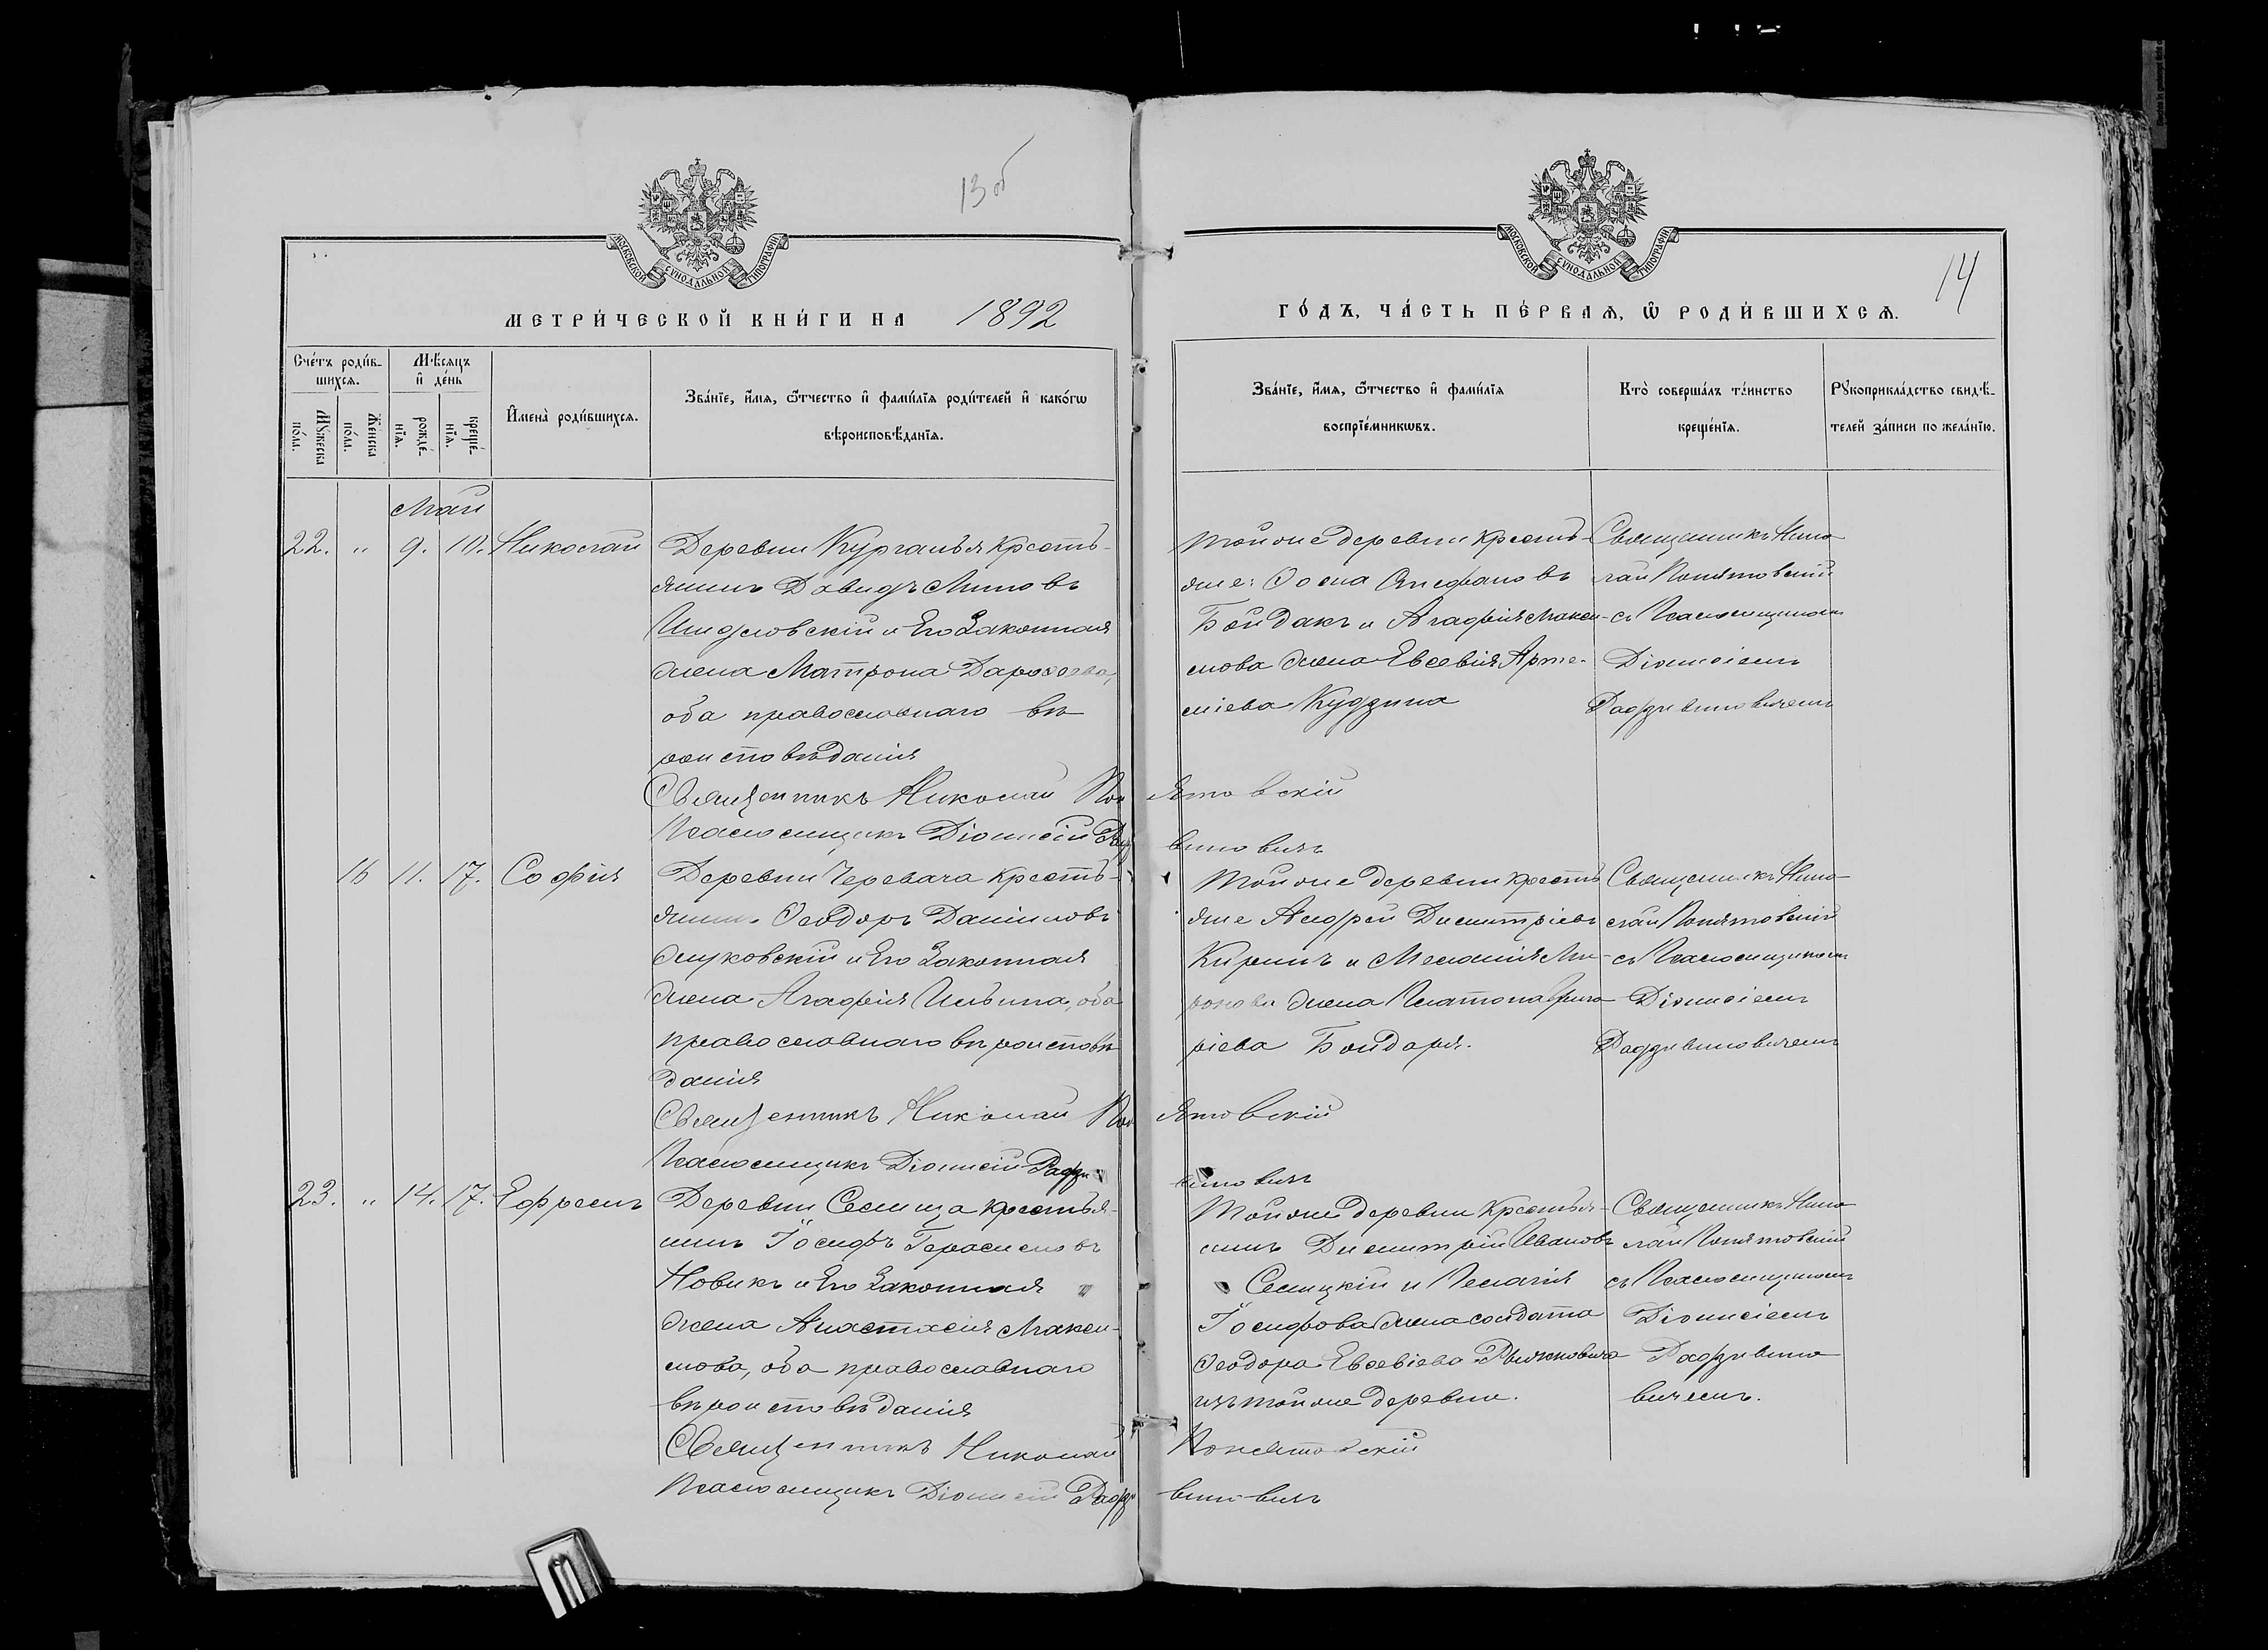 13 об
14
МОСКОВСКОЙ СѴНОДАЛЬНОЙ ТИПОГРАФІИ
МОСКОВСКОЙ СѴНОДАЛЬНОЙ ТИПОГРАФІИ
МЕТРИ́ЧЕСКОЙ КНИ́ГИ НА 1892
ГО́ДЪ, ЧА́СТЬ ПЕ́РВАѦ, Ѿ РОДИ́ВШИХСѦ.
Сче́тъ роди́в-
шихсѧ.
Мꙋжеска
по́ла.
Женска
по́ла.
Мѣ́сѧцъ
и҆ де́нь
рожде́-
нїѧ.
креще́-
нїѧ.
И҆мена̀ роди́вшихсѧ.
Зва́нїе, и҆́мѧ, ѻ҆́тчество и҆ фами́лїѧ роди́телей и҆ како́гѡ
вѣроисповѣ́данїѧ.
Зва́нїе, и҆́мѧ, ѻ҆́тчество и҆ фами́лїѧ
воспрїе́мникѡвъ.
Кто̀ соверша́лъ та́инство
креще́нїѧ.
Рꙋкоприкла́дство свидѣ́-
телей за́писи по жела́нїю.
Май
22. " 9. 10. Николай
Деревни Курганья крестья-
нинъ Давидъ Миновъ
и Его Законная
жена Матрона
оба православнаго вѣ
роисповѣданія
тойже деревни крестья
не: Ѳома Стефановъ
Бойдакъ и Агафія Макси-
мова жена Евсевія Арте-
міева
Священникъ Нико-
лай Понятовскій
съ Псаломщикомъ
Діонисіемъ
Радзивиновичемъ
Священникъ Николай Понятовскій
Псаломщикъ Діонисій Радзивиновичъ
16 11. 17. Софія
Деревни Черевача крестья-
нинъ Ѳеодоръ Даниловъ
Жуковскій и Его Законная
жена Агафія Ильина, оба
православнаго вѣроисповѣ
данія
Тойже деревни крестья
не Андрей Димитріевъ
Киринъ и Меланія Ми-
ронова жена Платона Григо
ріева Бондаря.
Священникъ Нико-
лай Понятовскій
съ Псаломщикомъ
Діонисіемъ
Радзивиновичемъ
Священникъ Николай Понятовскій
Псаломщикъ Діонисій Радзивиновичъ
23. " 14. 17. Ефремъ
Деревни Семица крестья-
нинъ Іосифъ Герасимовъ
Новикъ и Его Законная
жена Анастасія Макси-
мова, оба православнаго
вѣроисповѣданія
Тойже деревни Крестья-
нинъ Димитрій Ивановъ
Семицкій и Пелагія
Іосифова жена солдата
Ѳеодора Евсевіева
изъ тойже деревни.
Священникъ Нико
лай Понятовскій
съ Псаломщикомъ
Діонисіемъ
Радзивино
вичемъ.
Священникъ Николай Понятовскій
Псаломщикъ Діонисій Радзивиновичъ